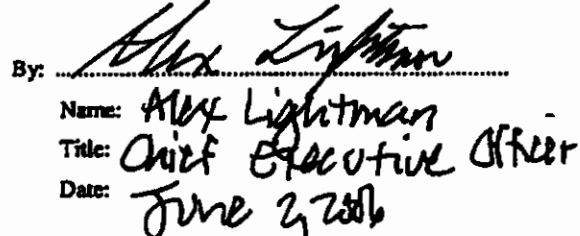 By: Alex Lightman
Name: Alex Lightman
Title: Chief Executive Officer
Date: June 2, 2006